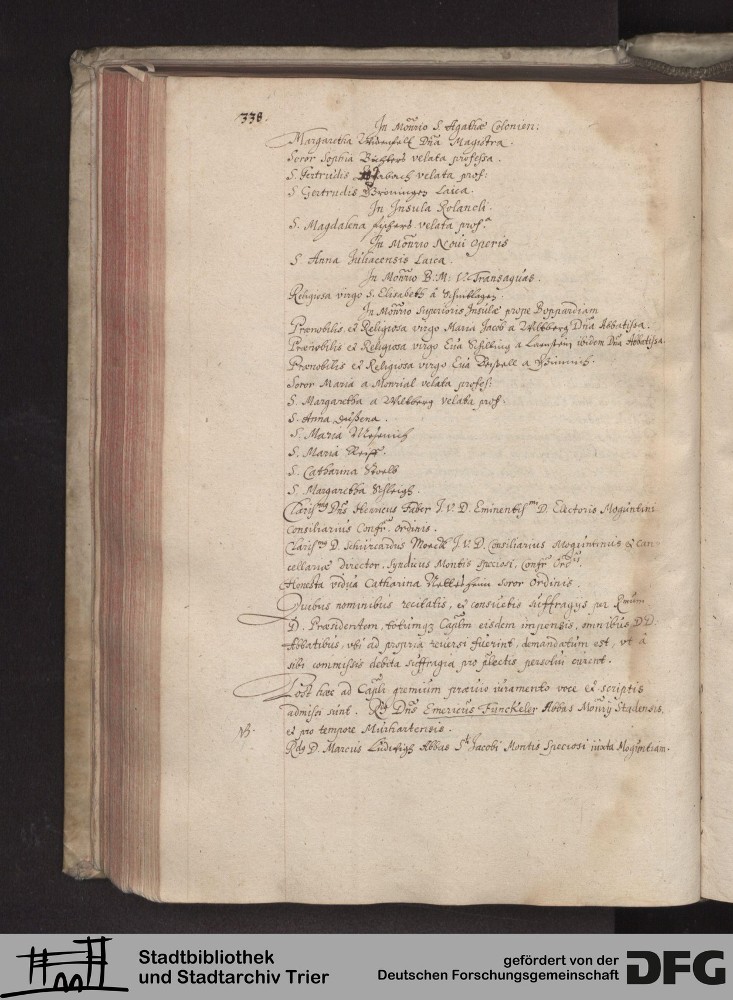 338.
In Monrio S. Agathæ Colonien:
Margaretha Widenfelt Dna Magistra.
Soror Sophia Bichlers velata professa.
S. Gertrudis velata prof:
S. Gertrudis Broninger Laica.
In Insula Rolandi.
S. Magdalena velata prof.
In Monrio Noui Operis
S. Anna Juliacensis Laica.
In Monrio B: M: V. Transaquas.
Religiosa virgo S. Elisabeth à
In Monrio Superioris Insulæ prope Boppardiam
Prænobilis et Religiosa virgo Maria Jacob a Wiltberg Dna Abbatissa.
Prænobilis et Religiosa virgo Eua Schilling a Lanstein ibidem Dna Abbatissa.
Prænobilis et Religiosa virgo Eua Beissell a
Soror Maria a Monrial velata profes:
S. Margaretha a Wiltberg velata prof.
S. Anna
S. Maria
S. Maria Reiff.
S. Catharina
S. Margaretha
Clariss Dns Henricus Faber J. V. D. Eminentiss D. Electoris Moguntini
Consiliarius Confr. Ordinis.
Clariss D. Schvicardus J. V. D. Consiliarius Moguntinus et can-
cellariæ director, Syndicus Montis speciosi, Confr Ord
Honesta vidua Catharina soror Ordinis.
Quibus nominibus recitatis, et consuetis suffragijs per Rmum
D. Præsidentem, totumqz Caplm eisdem impensis, omnibus DD.
Abbatibus, vbi ad propria reuersi fuerint, demandatum est, vt à
sibi commissis debita suffragia pro persolui curent.
Post hæc ad Capli gremium præuio iuramento voce et scriptis
admissi sunt. Rds Dns Emericus Fynckeler Abbas Monrij
et pro tempore Murhartensis.
NB.
Rdg D. Marcus Ludwigh Abbas Sti Jacobi Montis Speciosi iuxta Moguntiam.
Stadtbibliothek
und Stadtarchiv Trier
gefördert von der
Deutschen Forschungsgemeinschaft
DFG